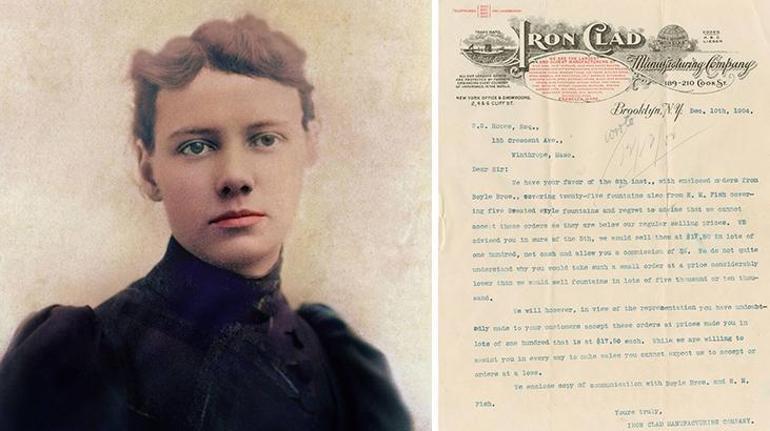 TRADE MARK.
IRON CLAD
CODES
Manufacturing Company
189-210 COOK ST.
NEW YORK OFFICE & SHOWROOMS
2, 4 & 6 CLIFF ST.
Brooklyn, N.Y. Dec. 10th, 1904.
wrote
Esq.,
Crescent Ave.,
Winthrop, Mass.
Dear Sir:
We have your favor of the 8th inst., with enclosed orders from
Boyle Bros., covering twenty-five fountains also from E. M. Fish cover-
ing five Seated style fountains and regret to advise that we cannot
accept these orders as they are below our regular selling prices. We
advised you in ours of the 5th, we would sell them at $17.50 in lots of
one hundred, net cash and allow you a commission of 5%. We do not quite
understand why you would take such a small order at a price considerably
lower than we would sell fountains in lots of five thousand or ten thou-
sand.
We will however, in view of the representation you have undoubt-
edly made to your customers accept these orders at prices made you in
lots of one hundred that is at $17.50 each. While we are willing to
assist you in every way to make sales you cannot expect us to accept or
orders at a loss.
We enclose copy of communication with Boyle Bros. and E. M.
Fish.
Yours truly,
IRON CLAD MANUFACTURING COMPANY.